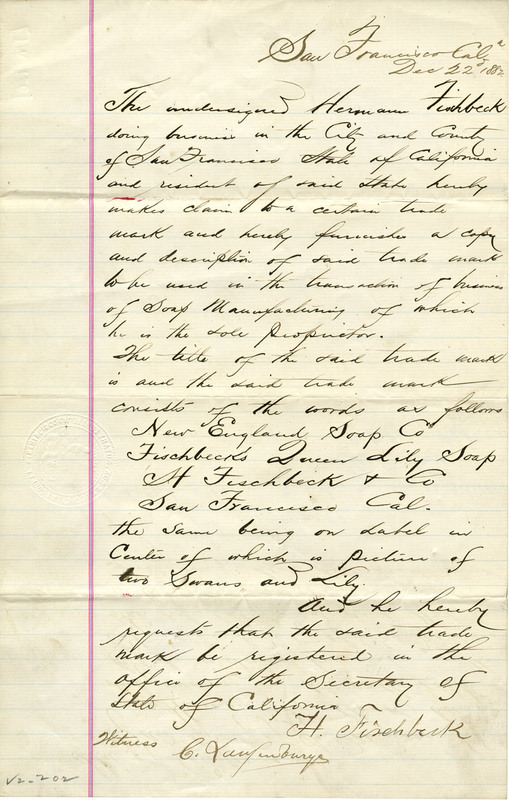 San Francisco Cala
Dec 22d 1882
The undersigned Hermann Fischbeck
doing business in the City and County
of San Francisco State of California
and resident of said State hereby
makes claim to a certain trade
mark and hereby furnishes a copy
and description of said trade mark
to be used in the transaction of business
of Soap Manufacturing of which
he is the sole proprietor.
The title of the said trade mark
is and the said trade mark
consists of the words as follows
New England Soap Co
Fischbeck's Queen Lily Soap
H Fischbeck & Co
San Francisco Cal.
the same being on Label in
Center of which is picture of
two Swans and Lily.
And he hereby
requests that the said trade
mark be registered in the
office of the Secretary of
State of California
H. Fischbeck
Witness
C.
V2-202